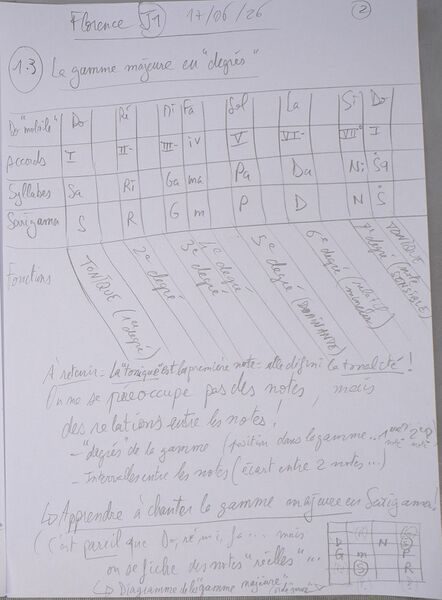 Florence J1 17/06/26 2
1.3 La gamme majeure en "degrés"
Do "mobile" Do Ré Mi Fa Sol La Si Do
Accords I II- III- IV V VI- VII° I
Syllabes Sa Ri Ga ma Pa Da Ni Sa
Sarigama S R G m P D N S
Fonctions TONIQUE (1er degré) 2e degré 3e degré 4e degré 5e degré (DOMINANTE) 6e degré (relatif mineur) 7e degré (note SENSIBLE) TONIQUE
À retenir - La "tonique" est la première note - elle définit la tonalité !
On ne se préoccupe pas des notes, mais
des relations entre les notes !
- "degrés" de la gamme (position dans la gamme ... 1ère note 2e note
- Intervalles entre les notes (écart entre 2 notes...)
↳ Apprendre à chanter la gamme majeure en Sarigama !
(c'est pareil que Do, ré, mi, fa... mais
on se fiche des notes "réelles"...
↳ Diagramme de la "gamme majeure"
D N
G m P
S R